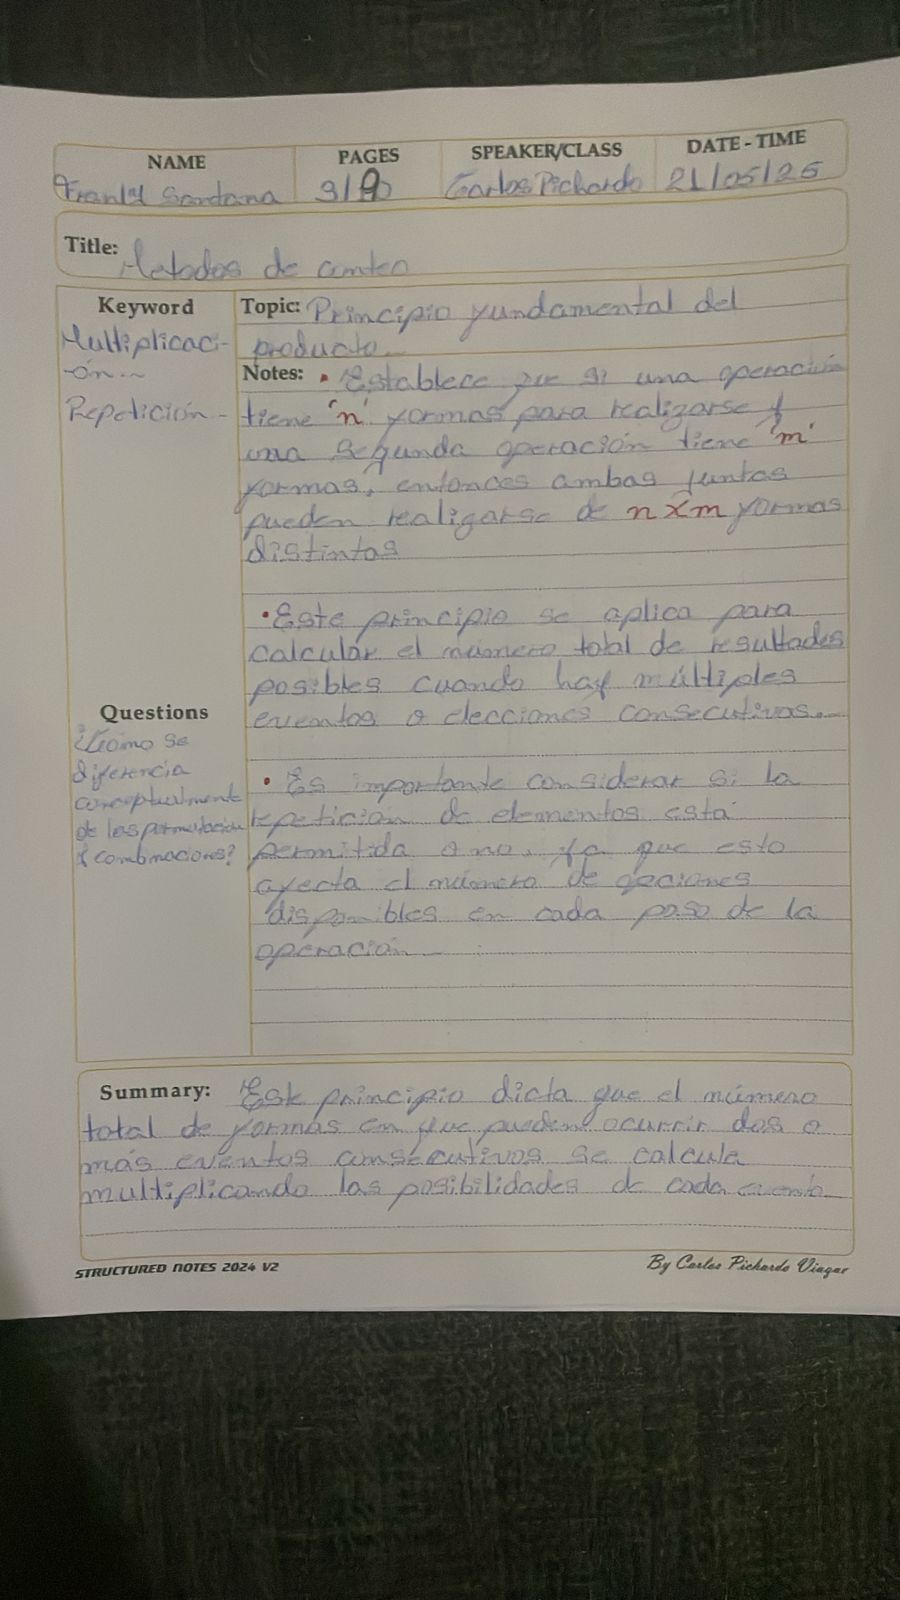 NAME PAGES SPEAKER/CLASS DATE - TIME
Franly Santana 9/ Carlos Pichardo 21/05/25
Title: Metodos de conteo
Keyword
Multiplicaci-
ón
Repetición
Topic: Principio fundamental del
producto
Notes: • Establece que si una operación
tiene 'n' formas para realizarse y
una segunda operación tiene 'm'
formas, entonces ambas juntas
pueden realizarse de n x m formas
distintas
• Este principio se aplica para
calcular el número total de resultados
posibles cuando hay múltiples
eventos o elecciones consecutivos
• Es importante considerar si la
repeticion de elementos está
permitida o no, ya que esto
afecta el número de opciones
disponibles en cada paso de la
operación
Questions
¿Cómo se
diferencia
conceptualmente
de las permutacion
y combinacions?
Summary: Este principio dicta que el número
total de formas en que pueden ocurrir dos o
más eventos consecutivos se calcula
multiplicando las posibilidades de cada evento
STRUCTURED NOTES 2024 V2
By Carlos Pichardo Viuque